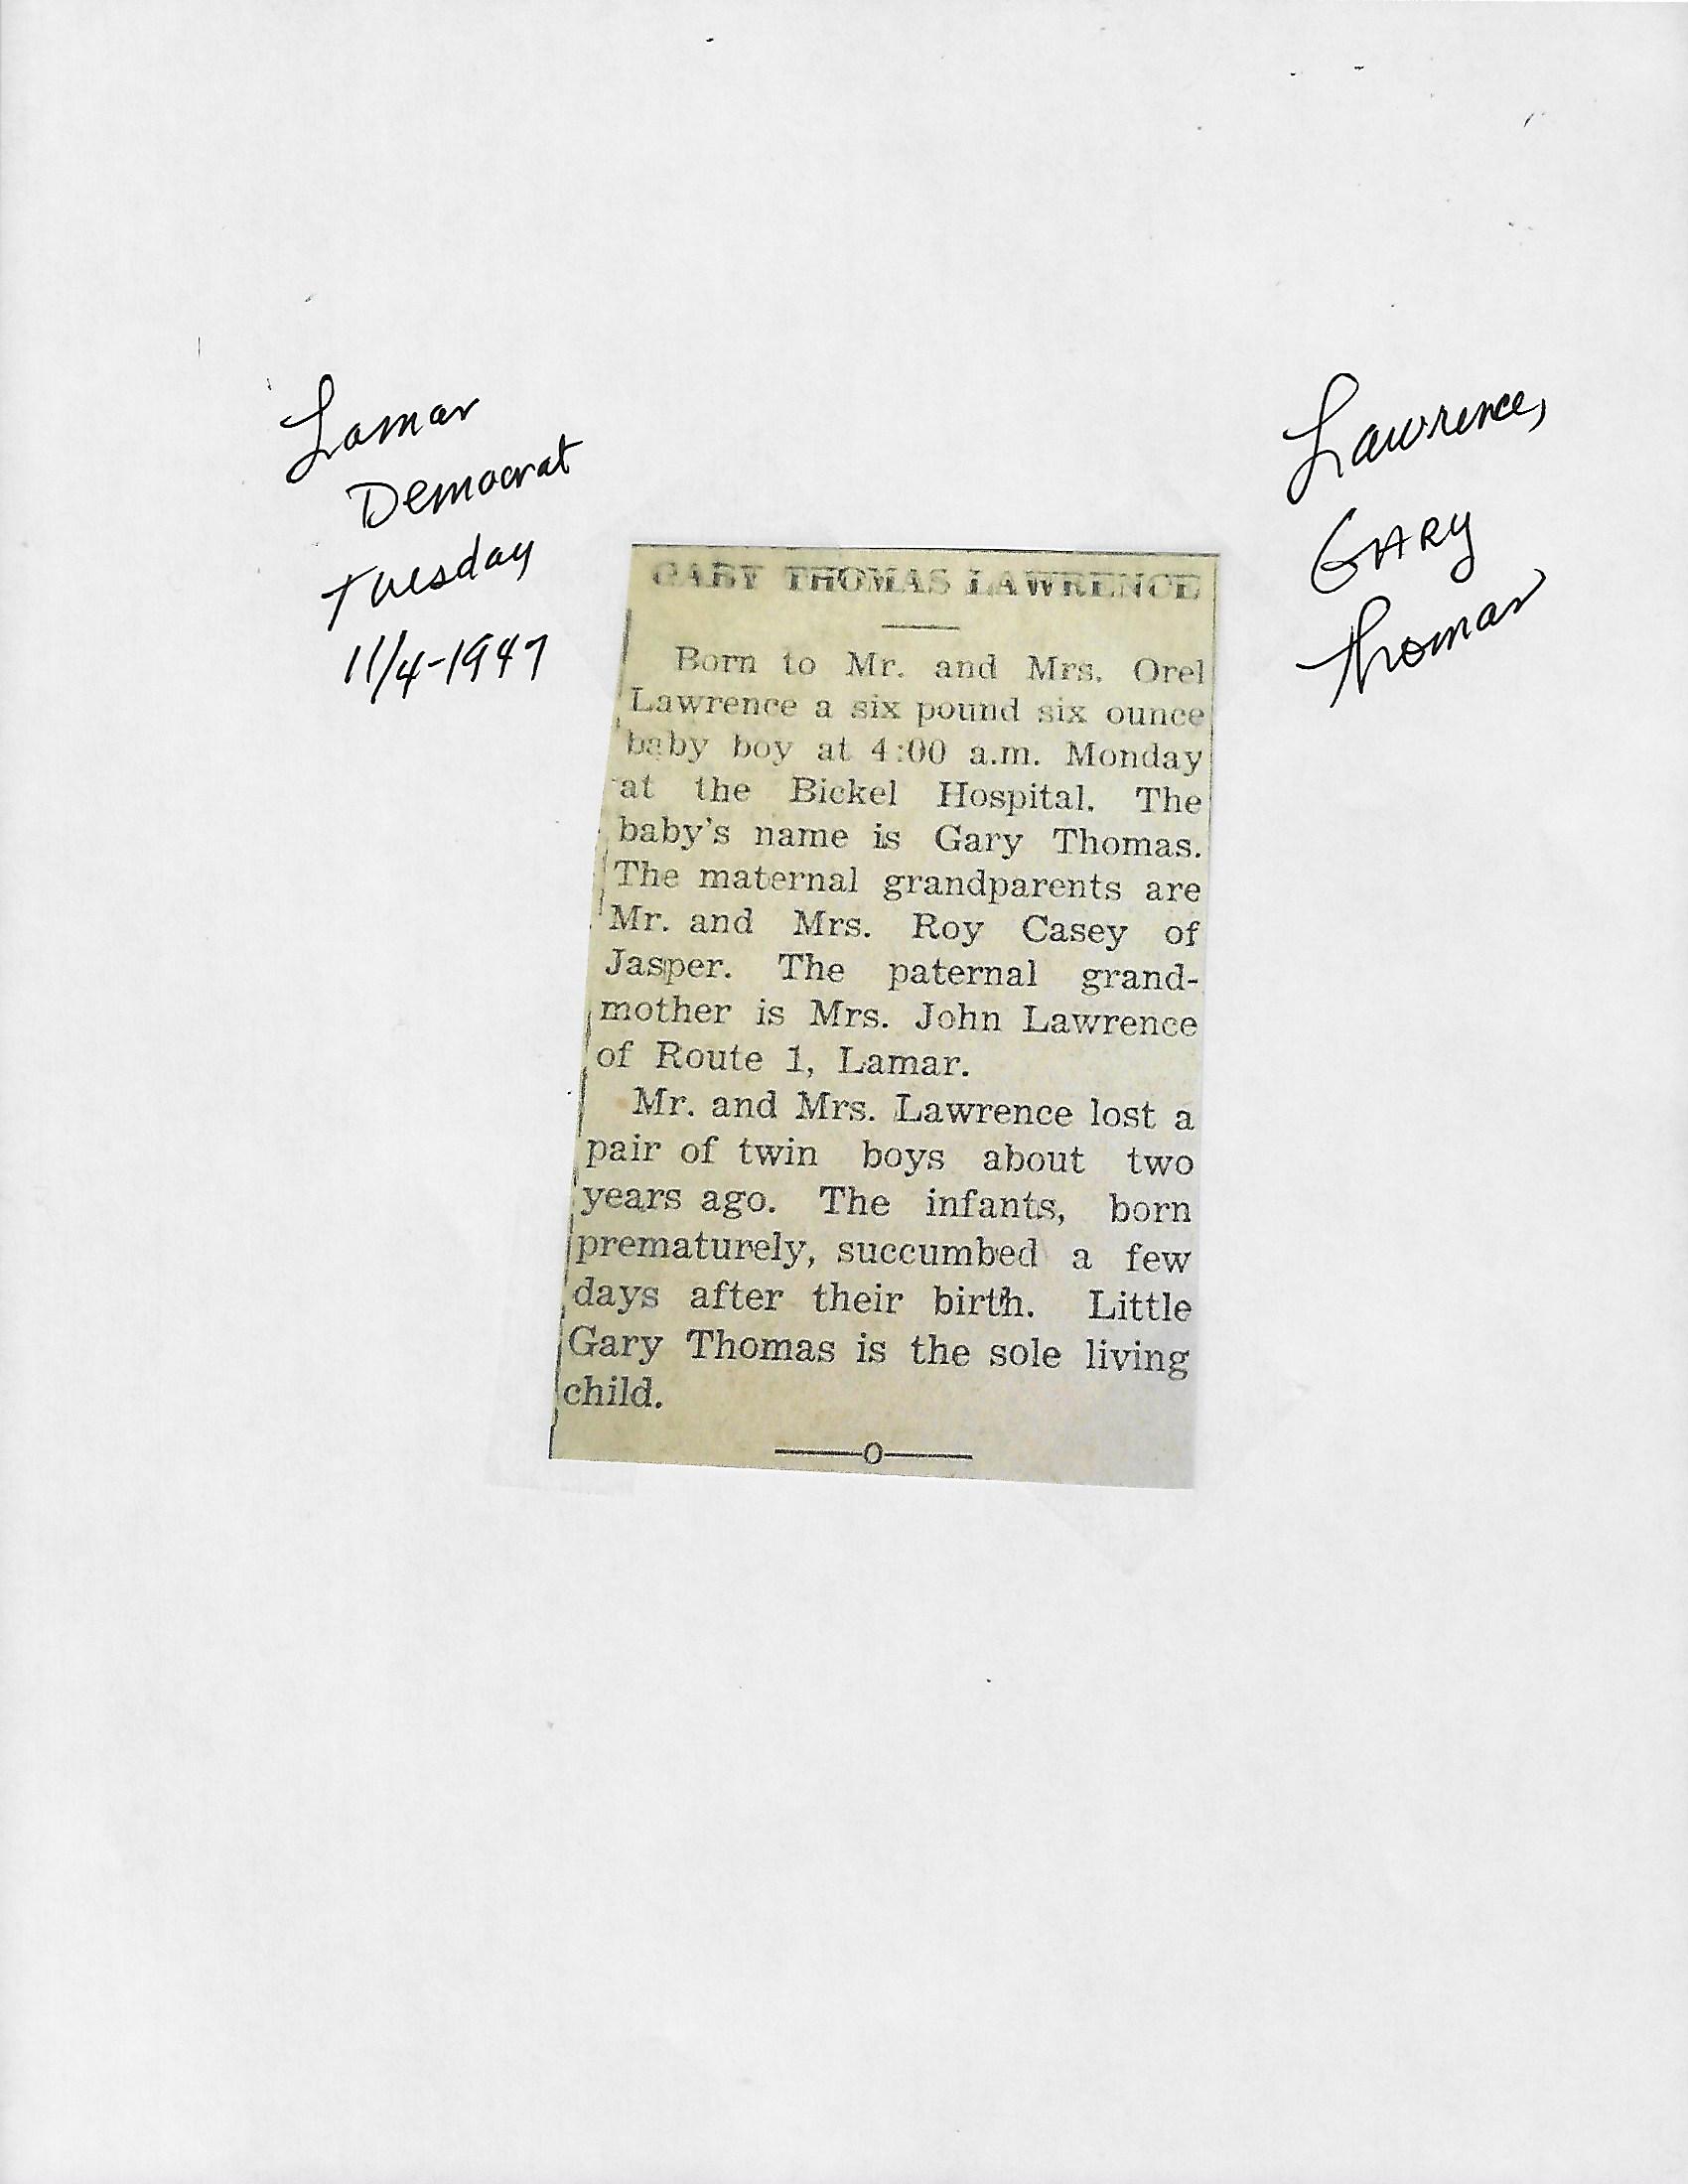 Lamar
Democrat
Tuesday
11/4-1947
Lawrence,
GARY
Thomas
GARY THOMAS LAWRENCE
Born to Mr. and Mrs. Orel
Lawrence a six pound six ounce
baby boy at 4:00 a.m. Monday
at the Bickel Hospital. The
baby's name is Gary Thomas.
The maternal grandparents are
Mr. and Mrs. Roy Casey of
Jasper. The paternal grand-
mother is Mrs. John Lawrence
of Route 1, Lamar.
Mr. and Mrs. Lawrence lost a
pair of twin boys about two
years ago. The infants, born
prematurely, succumbed a few
days after their birth. Little
Gary Thomas is the sole living
child.